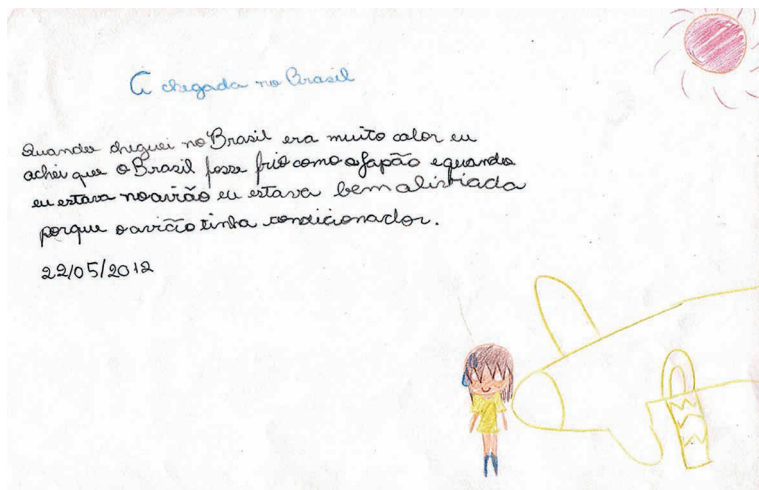 A chegada no Brasil
Quando cheguei no Brasil era muito calor eu
achei que o Brasil fosse frio como o Japão e quando
eu estava no avião eu estava bem alistiada
porque o avião tinha condicionador.
22/05/2012